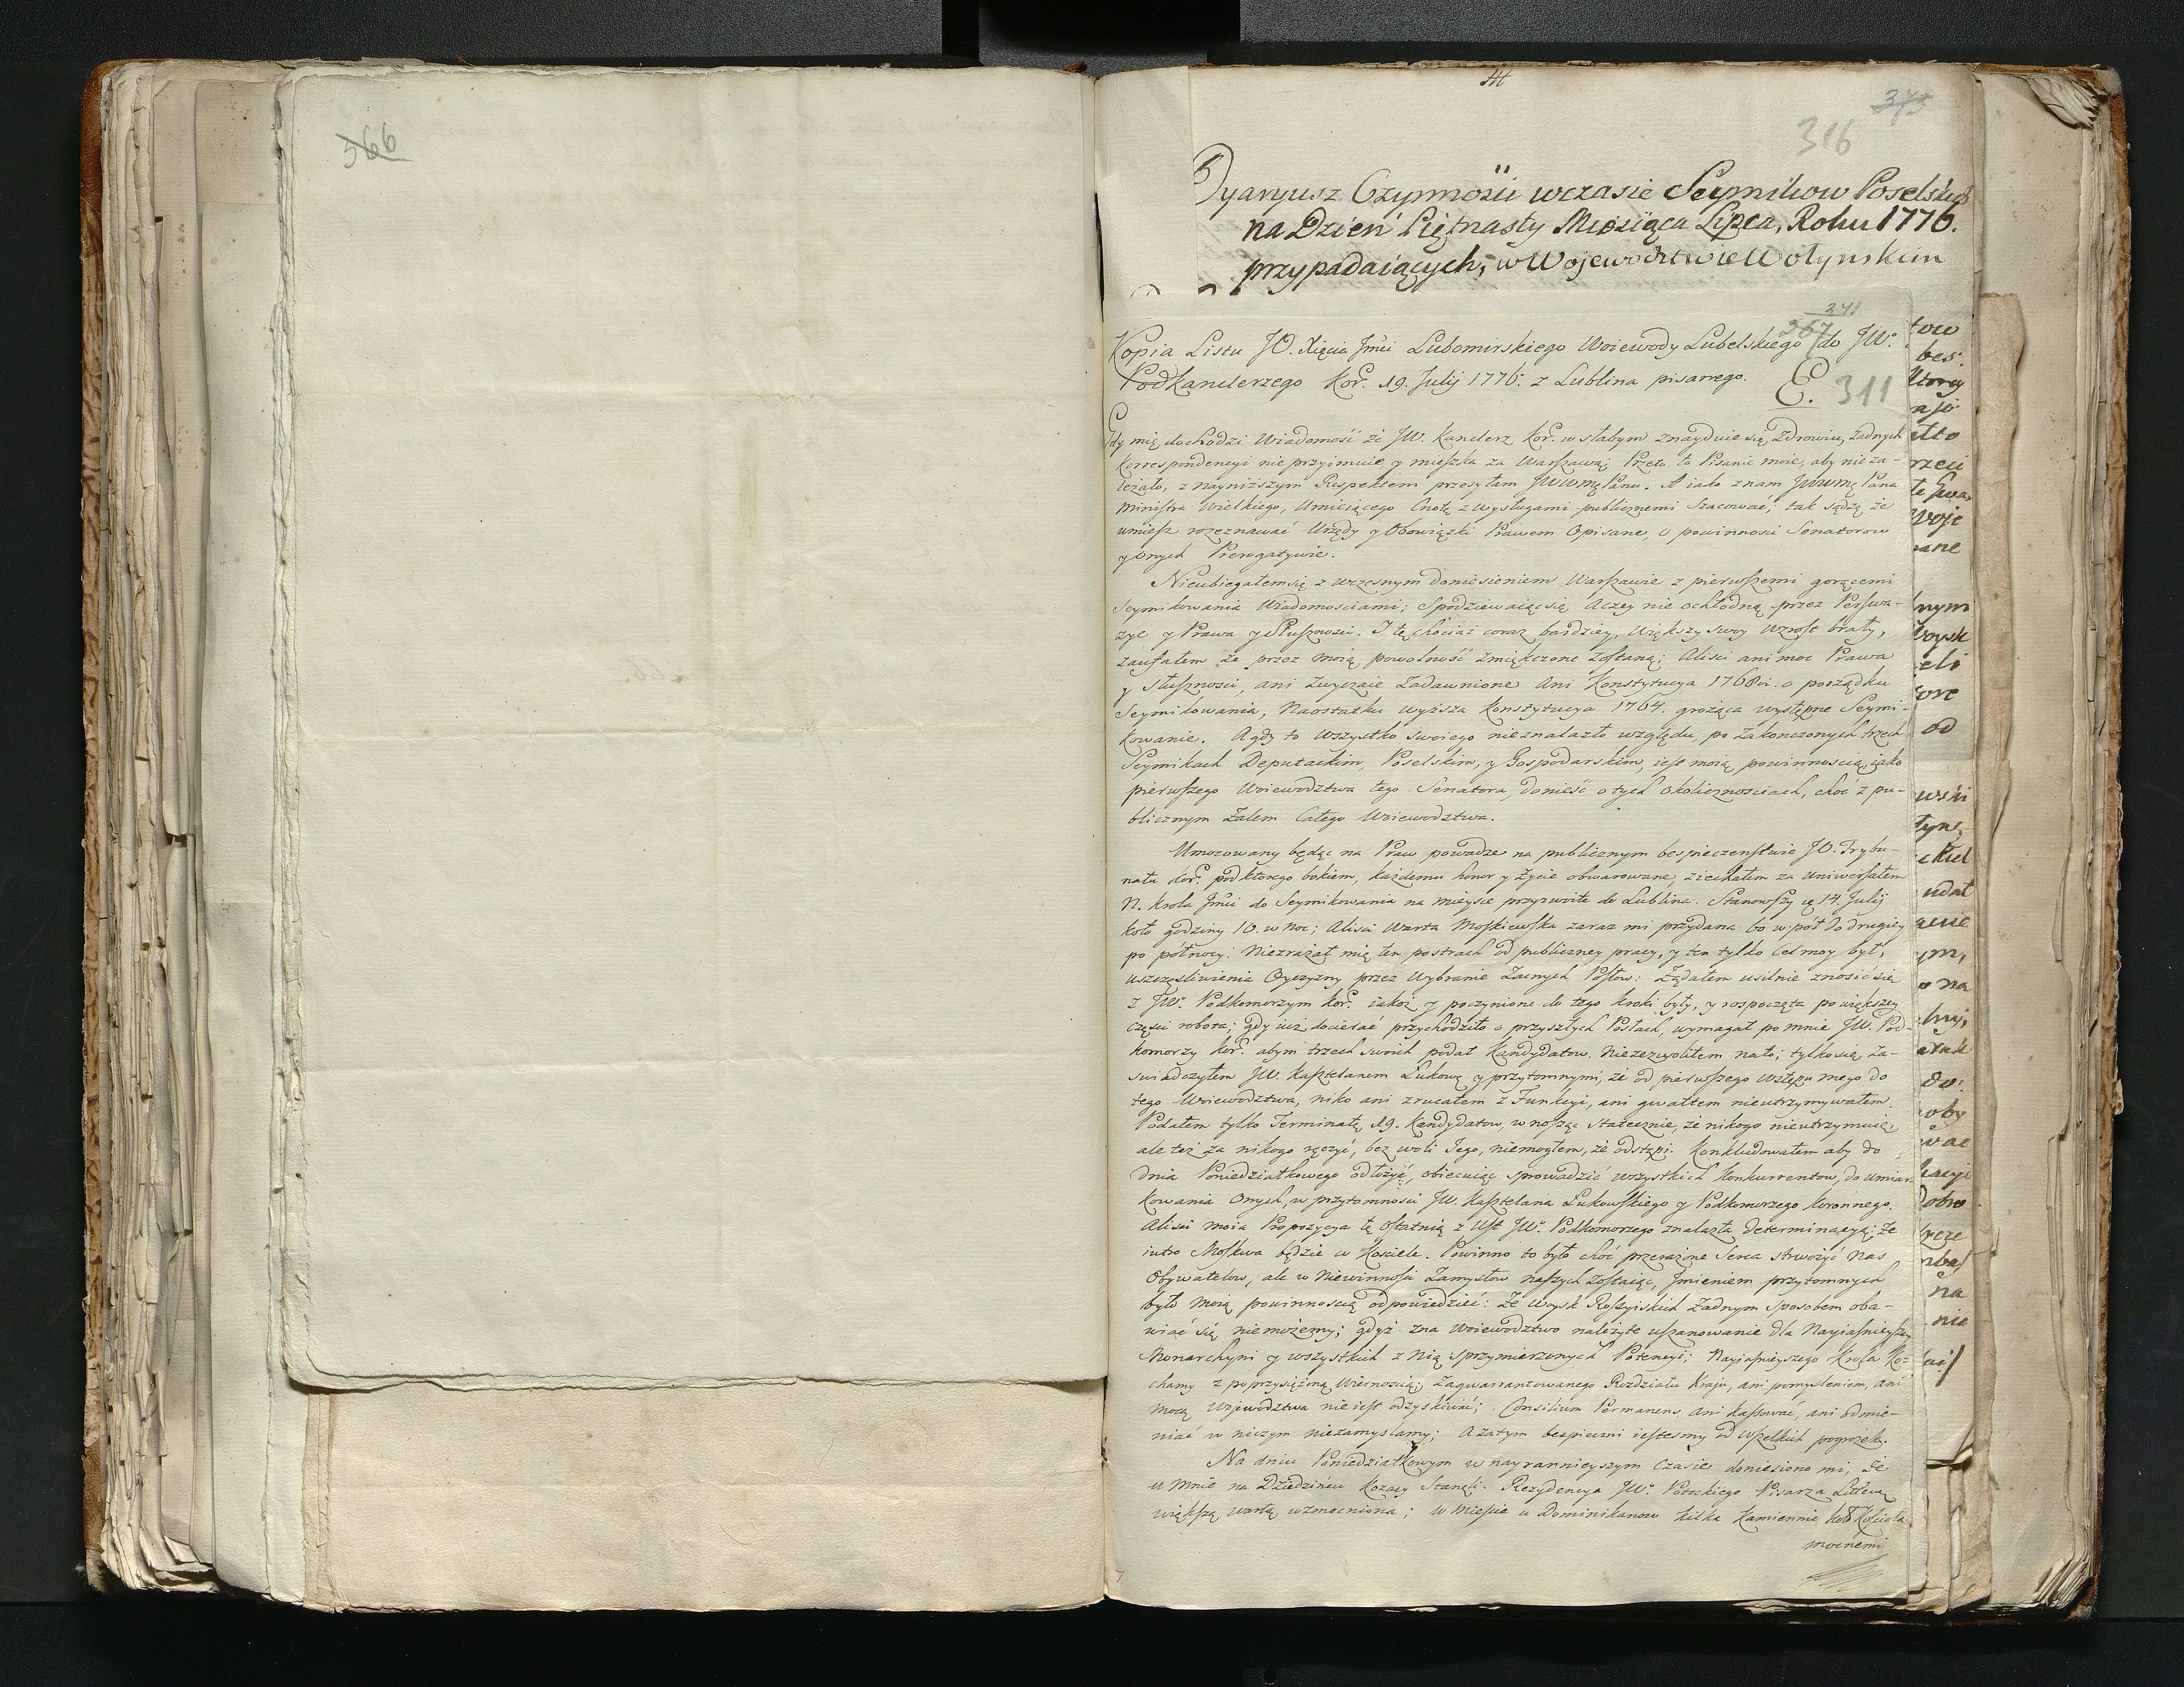 366
373
316
Dyaryusz Czynnośći wczasie Seymikow Poselskich
na Dzień Piętnasty Miesiąca Lipca, Roku 1776.
przypadaiących, w Wojewodztwie Wołynskim
371
367
Kopia Listu JO. Xięcia Jmći Lubomirskiego Woiewody Lubelskiego do JWo
Podkanclerzego Kor. 19. Julij 1776. z Lublina pisanego.
E. 311
Gdy mię dochodzi Wiadomość że JW. Kanclerz Kor. w słabym znayduie się Zdrowiu, żadnych
Korrespondencyi nie przyimuie, y mieszka za Warszawą; Przeto to Pisanie moie, aby nie za-
leżało, z nayniższym Respektem przesyłam JWWmę Panu. A iako znam JWWmę Pana
Ministra Wielkiego, Umieiącego Cnotę z wysługami publicznemi Szacować; tak sądzę że
umiesz rozeznawać Urzędy y Obowiązki Prawem Opisane, o powinnosci Senatorow
y onych Prerogatywie.
Nieubiegałem się z wczesnym doniesieniem Warszawie z pierwszemi gorącemi
Seymikowania Wiadomosciami; Spodziewaiąc się Aczey nie ochłodną przez Perswa-
zye y Prawa y Słuszności. I te chociaż coraz bardziey, Większy swoy Wzrost brały,
zaufałem że przez moią powolność zmiękczone zostaną; Alisci ani moc Prawa
y Słusznosci, ani Zwyczaie Zadawnione Ani Konstytucya 1768 o porządku
Seymikowania, Naostatku Wyższa Konstytucya 1764. grożąca występne Seymi-
kowanie. A gdy to Wszystko swoiego nieznalazło względu, po Zakonczonych trzech
Seymikach Deputackim, Poselskim, y Gospodarskim, iest moią powinnoscią, iako
pierwszego Woiewodztwa tego Senatora, donieść o tych Okolicznosciach, choć z pu-
blicznym Zalem Całego Woiewodztwa.
Umocowany będąc na Praw powadze na publicznym bespieczenstwie JO. Trybu-
nału Kor. pod ktorego bokiem, każdemu honor y Zycie obwarowane, ziechałem za Uniwersałem
N. Krola Jmći do Seymikowania na mieysce przyzwoite do Lublina. Stanowszy 14. Julij
koło godziny 10. w Noc; Alisci Warta Moskiewska zaraz mi przydana bo w puł do drugiey
po pułnocy: Niezrażał mię ten postrach od publiczney pracy, y ten tylko Cel moy był,
uszczęśliwienia Oyczyzny przez Wybranie Zacnych Posłow: Żądałem usilnie znosić się
z JWo Podkomorzym Kor. iakoż y poczynione do tego kroki były, y rospoczęta po większey
części robota; gdy iuż docierać przychodziło o przyszłych Posłach, wymagał po mnie JW. Pod-
komorzy Kor. abym trzech swoich podał Kandydatow. Niezezwoliłem na to; tylko się Za-
swiadczyłem JW. Kasztelanem Łukowę y przytomnymi, że od pierwszego Wstępu mego do
tego Woiewodztwa, niko ani zrucałem z Funkcyi, ani gwałtem nieutrzymywałem.
Podałem tylko Terminatę 19. Kandydatow, wnosząc Statecznie, że nikogo nieutrzymuię,
ale też za nikogo ręczyć, bez woli Jego, niemogłem, że odstąpi. Konkludowałem aby do
dnia Poniedziałkowego odłożyć, obiecuiąc sprowadzić wszystkich Konkurrentow, do Umiar-
kowania Onych, w przytomnosci JW. Kasztelana Łukowskiego y Podkomorzego Koronnego.
Alisci moia Propozycya tę Ostatnią z Ust JWo Podkomorzego znalazła determinacyą; Że
iutro Moskwa będzie w Kosciele. Powinno to było choć przerażone Serca strwożyć nas
Obywatelow, ale w Niewinności Zamysłow naszych zostaiąc, Jmieniem przytomnych
było moią powinnoscią odpowiedzieć: Że Woysk Rossyiskich Żadnym sposobem oba-
wiać się niemożemy; gdyż zna Woiewodztwo należyte uszanowanie dla Nayiasnieyszey
Monarchyni y wszystkich z Nią sprzymierzonych Potencyi; Nayiasnieyszego Krola Ko-
chamy z poprzysiężoną Wiernoscią; Zagwarrantowanego Rozdziału Kraju, ani pomysleniem, ani
mocą Wojewodztwa nie iest odzyskiwać; Consilium Permanens, ani kassować, ani odmie-
niać w niczym niezamyslamy; A zatym bespieczni iestesmy od Wszelkich pogrożek.
Na dniu Poniedziałkowym w nayrannieyszym Czasie doniesiono mi, że
u Mnie na Dziedzincu Kozacy Stanęli. Rezydencya JWo Potockiego Pisarza Littew
większą wartą wzmocniona; w Miescie u Dominikanow kilka Kamiennic koło Kościoła
mocnemi